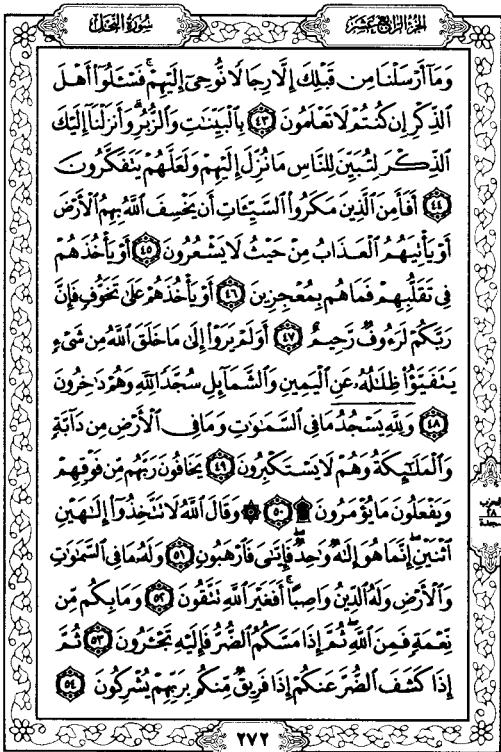 الجزء الرابع عشر
سورة النحل
وَمَآ أَرْسَلْنَا مِن قَبْلِكَ إِلَّا رِجَالًا نُّوحِىٓ إِلَيْهِمْ ۚ فَسْـَٔلُوٓا۟ أَهْلَ
ٱلذِّكْرِ إِن كُنتُمْ لَا تَعْلَمُونَ ٤٣ بِٱلْبَيِّنَـٰتِ وَٱلزُّبُرِ ۗ وَأَنزَلْنَآ إِلَيْكَ
ٱلذِّكْرَ لِتُبَيِّنَ لِلنَّاسِ مَا نُزِّلَ إِلَيْهِمْ وَلَعَلَّهُمْ يَتَفَكَّرُونَ
٤٤ أَفَأَمِنَ ٱلَّذِينَ مَكَرُوا۟ ٱلسَّيِّـَٔاتِ أَن يَخْسِفَ ٱللَّهُ بِهِمُ ٱلْأَرْضَ
أَوْ يَأْتِيَهُمُ ٱلْعَذَابُ مِنْ حَيْثُ لَا يَشْعُرُونَ ٤٥ أَوْ يَأْخُذَهُمْ
فِى تَقَلُّبِهِمْ فَمَا هُم بِمُعْجِزِينَ ٤٦ أَوْ يَأْخُذَهُمْ عَلَىٰ تَخَوُّفٍ فَإِنَّ
رَبَّكُمْ لَرَءُوفٌ رَّحِيمٌ ٤٧ أَوَلَمْ يَرَوْا۟ إِلَىٰ مَا خَلَقَ ٱللَّهُ مِن شَىْءٍ
يَتَفَيَّؤُا۟ ظِلَـٰلُهُۥ عَنِ ٱلْيَمِينِ وَٱلشَّمَآئِلِ سُجَّدًا لِّلَّهِ وَهُمْ دَٰخِرُونَ
٤٨ وَلِلَّهِ يَسْجُدُ مَا فِى ٱلسَّمَـٰوَٰتِ وَمَا فِى ٱلْأَرْضِ مِن دَآبَّةٍ
وَٱلْمَلَـٰٓئِكَةُ وَهُمْ لَا يَسْتَكْبِرُونَ ٤٩ يَخَافُونَ رَبَّهُم مِّن فَوْقِهِمْ
وَيَفْعَلُونَ مَا يُؤْمَرُونَ ۩ ٥٠ ۞ وَقَالَ ٱللَّهُ لَا تَتَّخِذُوٓا۟ إِلَـٰهَيْنِ
ٱثْنَيْنِ ۖ إِنَّمَا هُوَ إِلَـٰهٌ وَٰحِدٌ ۖ فَإِيَّـٰىَ فَٱرْهَبُونِ ٥١ وَلَهُۥ مَا فِى ٱلسَّمَـٰوَٰتِ
وَٱلْأَرْضِ وَلَهُ ٱلدِّينُ وَاصِبًا ۚ أَفَغَيْرَ ٱللَّهِ تَتَّقُونَ ٥٢ وَمَا بِكُم مِّن
نِّعْمَةٍ فَمِنَ ٱللَّهِ ۖ ثُمَّ إِذَا مَسَّكُمُ ٱلضُّرُّ فَإِلَيْهِ تَجْـَٔرُونَ ٥٣ ثُمَّ
إِذَا كَشَفَ ٱلضُّرَّ عَنكُمْ إِذَا فَرِيقٌ مِّنكُم بِرَبِّهِمْ يُشْرِكُونَ ٥٤
سجدة
٢٧٢